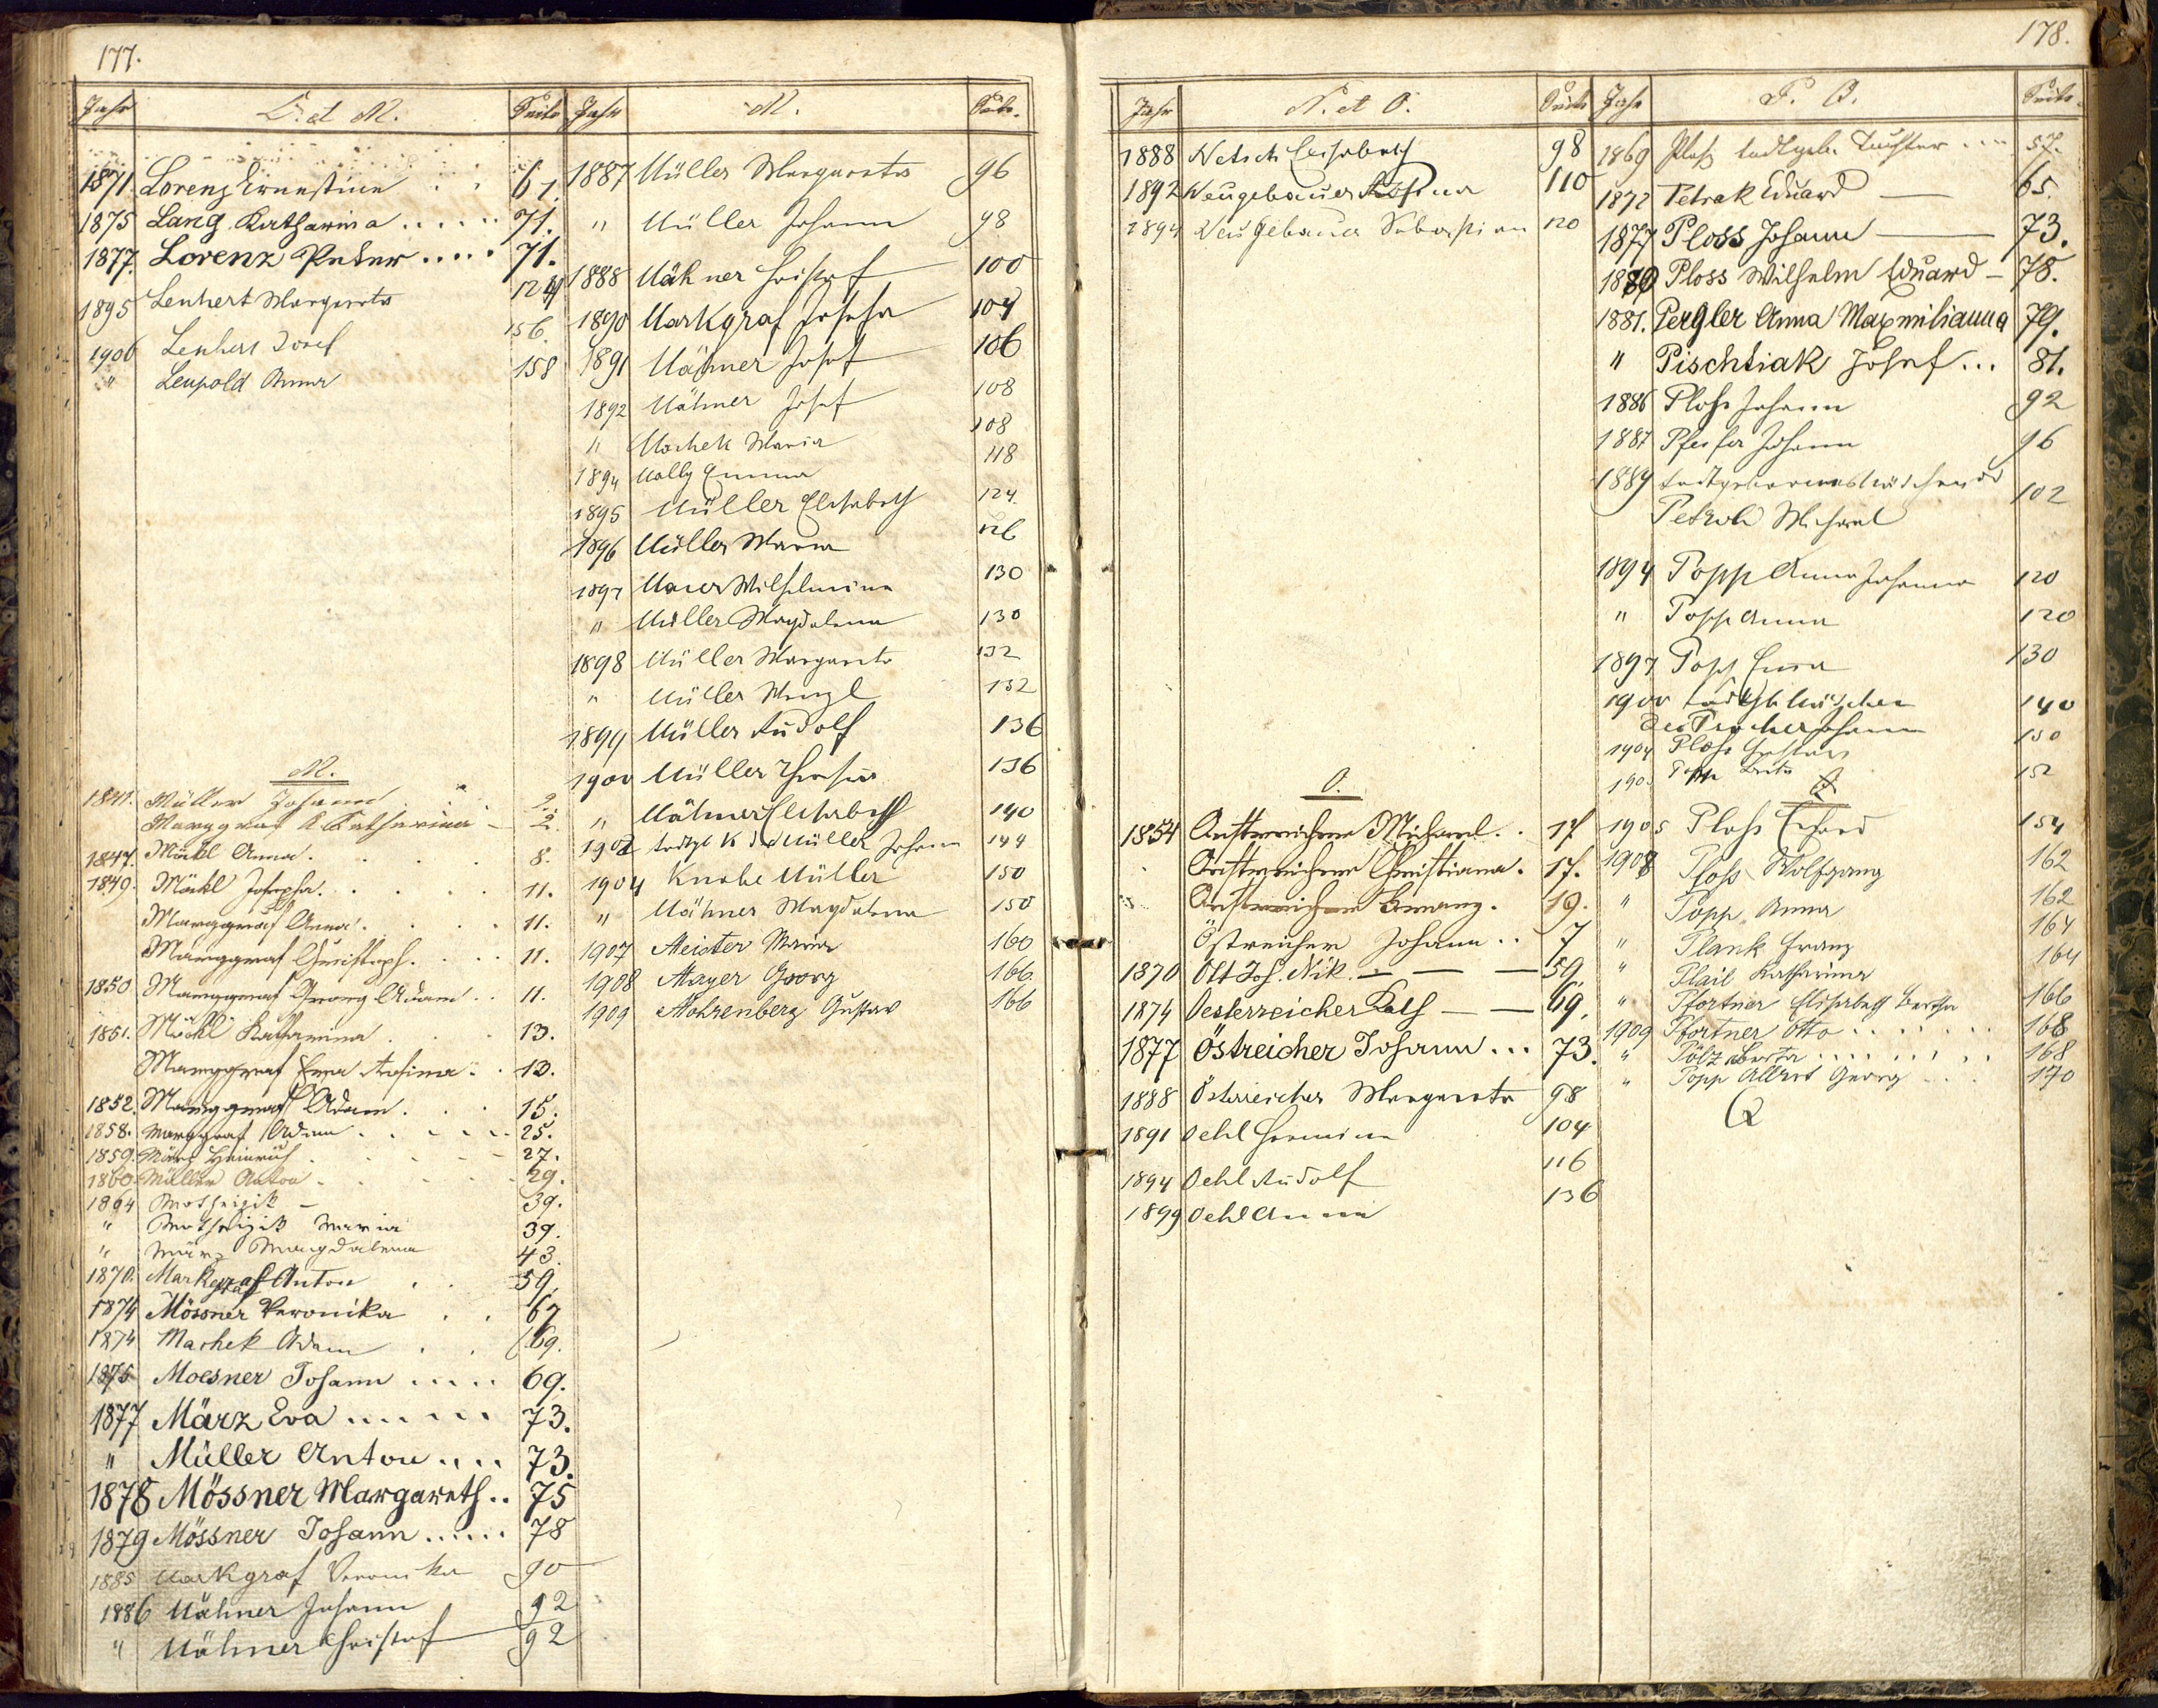 177.
Jahr L. et M. Seite
1871 Lorenz Ernestine . . 61.
1875 Lang Katharina . . . . . 71.
1877. Lorenz Peter . . . . 71.
1895 Lenhert Margareta 124
1906 Lenhert Josef 156.
" Leupold Anna 158
M.
1841. Müller Johann 2.
Marggraf Katharina - 2.
1847. Möckl Anna . . . . 8.
1849. Möckl Josepha . . . . 11.
Marggraf Anna . . . . 11.
Marggraf Christoph . . . . 11.
1850 Marggraf Georg Adam . . 11.
1851. Möckl Katharina . . . 13.
Marggraf Eva Rosina . . 13.
1852. Marggraf Adam . . . 15.
1858. Marggraf Adam . . . . . 25.
1859. März Heinrich . . . . 27.
1860. Müller Anton . . . . 29.
1864 - 39.
" Maria 39.
" März Magdalena 43.
1870. Markgraf Anton . . 59.
1874 Mössner Veronika . . 67
1874 Machek Adam . . 69.
1875 Moesner Johann . . . . . 69.
1877 März Eva . . . . . . 73.
" Müller Anton . . . . 73.
1878 Mössner Margareth . . 75
1879 Mössner Johann . . . . . 78
1885 Markgraf Veronika 90
1886 Mähner Johann 92
" Mähner Christof 92
Jahr M. Seite.
1887 Müller Margareta 96
" Müller Johann 98
1888 Mähner Christof 100
1890 Markgraf Josefa 104
1891 Mähner Josef 106
1892 Mähner Josef 108
" Machek Maria 108
1894 Mally Emma 118
1895 Müller Elisabeth 124.
1896 Müller Maria 126
1897 Maier Wilhelmine 130
" Müller Magdalena 130
1898 Müller Margareta 132
" Müller Wenzl 132
1899 Müller Rudolf 136
1900 Müller Theresia 136
" Mähner Elisabeth 140
1902 todtgb K der Müller Johann 144
1904 Knabe Müller 150
" Mähner Magdalena 150
1907 Meister Maria 160
1908 Mayer Georg 166
1909 Mohrenberg Gustav 166
178.
Jahr N. et O. Seite
1888 Netsch Elisabeth 98
1892 Neugebauer Rosina 110
1894 Neugebauer Sebastian 120
O.
1854 Oestreicher Michael . . 17
Oestreicher Christiana . 17.
Oestreicher Franz . 19.
Östreicher Johann . . 7
1870 Ott Joh. Nik. - - - 59.
1874 Oesterreicher - - 69.
1877 Östreicher Johann . . . 73.
1888 Österreicher Margareta 98
1891 Oehl Hermine 104
1894 Oehl Rudolf 116
1899 Oehl Anna 136
Jahr P. Q. Seite.
1869 Ploß todtgeb. Tochter . . . 57.
1872 Petrak Eduard - 65.
1877 Ploss Johann - 73.
1880 Ploss Wilhelm Eduard - 78.
1881. Pergler Anna Maxmilianna 79.
" Pischtiak Josef . . . 81.
1886 Ploß Johann 92
1887 Pfeifer Johann 96
1889 todtgeborenes Mädchen des
Michael 102
1894 Popp Anna Johanna 120
" Popp Anna 120
1897 Popp Erna 130
1900 todtgb Mädchen 140
des Johann
1904 Ploß Gustav 150
1905 Popp Berta 152
1905 Ploß Erhard 154
1908 Ploß Wolfgang 162
" Popp Anna 162
" Plank Franz 164
" Plail Katharina 164
" Pfortner Elisabeth Bertha 166
1909 Pfortner Otto . . . . . . . 168
" Pölz Berta . . . . . . . 168
" Popp Albert Georg . . . 170
Q